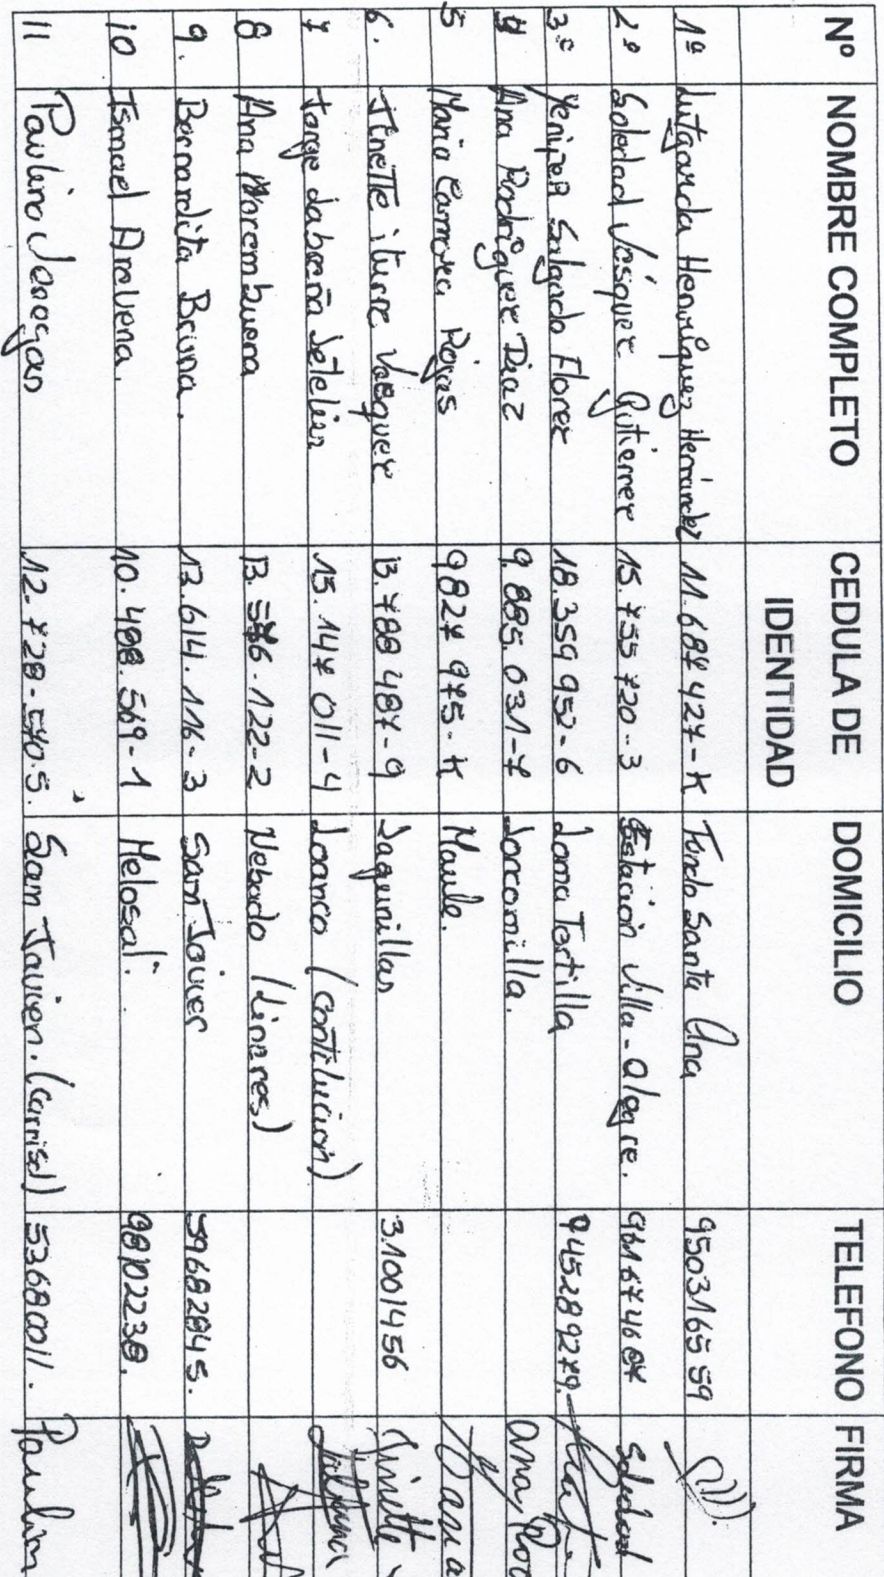 Nº NOMBRE COMPLETO CEDULA DE IDENTIDAD DOMICILIO TELEFONO FIRMA
1º Lutgarda Henríquez Hernández 11.687 427-K Fundo Santa Ana 950316559
2º Soledad Vásquez Gutierrez 15.755 720-3 Estación Villa-Alegre. 961674687
3º Yenifer Salgado Florez 18.359 952-6 Loma Tortilla 945289279.
4 Ana Rodríguez Diaz 9.885.031-7 Loncomilla. Ana
5 Maria Rojas 9827 975-K Maule. Maria
6. Jinette iturre Vasquez 13.788 487-9 Lagunillas 31001456 Jinette
7 Jorge Letelier 15.147 011-4 Loanco (contitucion)
8 Ana Morembuena 13. 122-2 Nebado (Linares)
9. Bernardita Bruna. 13.614.116-3 San Javier 59682845.
10 Ismael Aravena. 10.488.569-1 Melosal. 98102238.
11 Paulina Venegas 12.728-570-5. San Javier. (carrisal) 53680011. Paulina